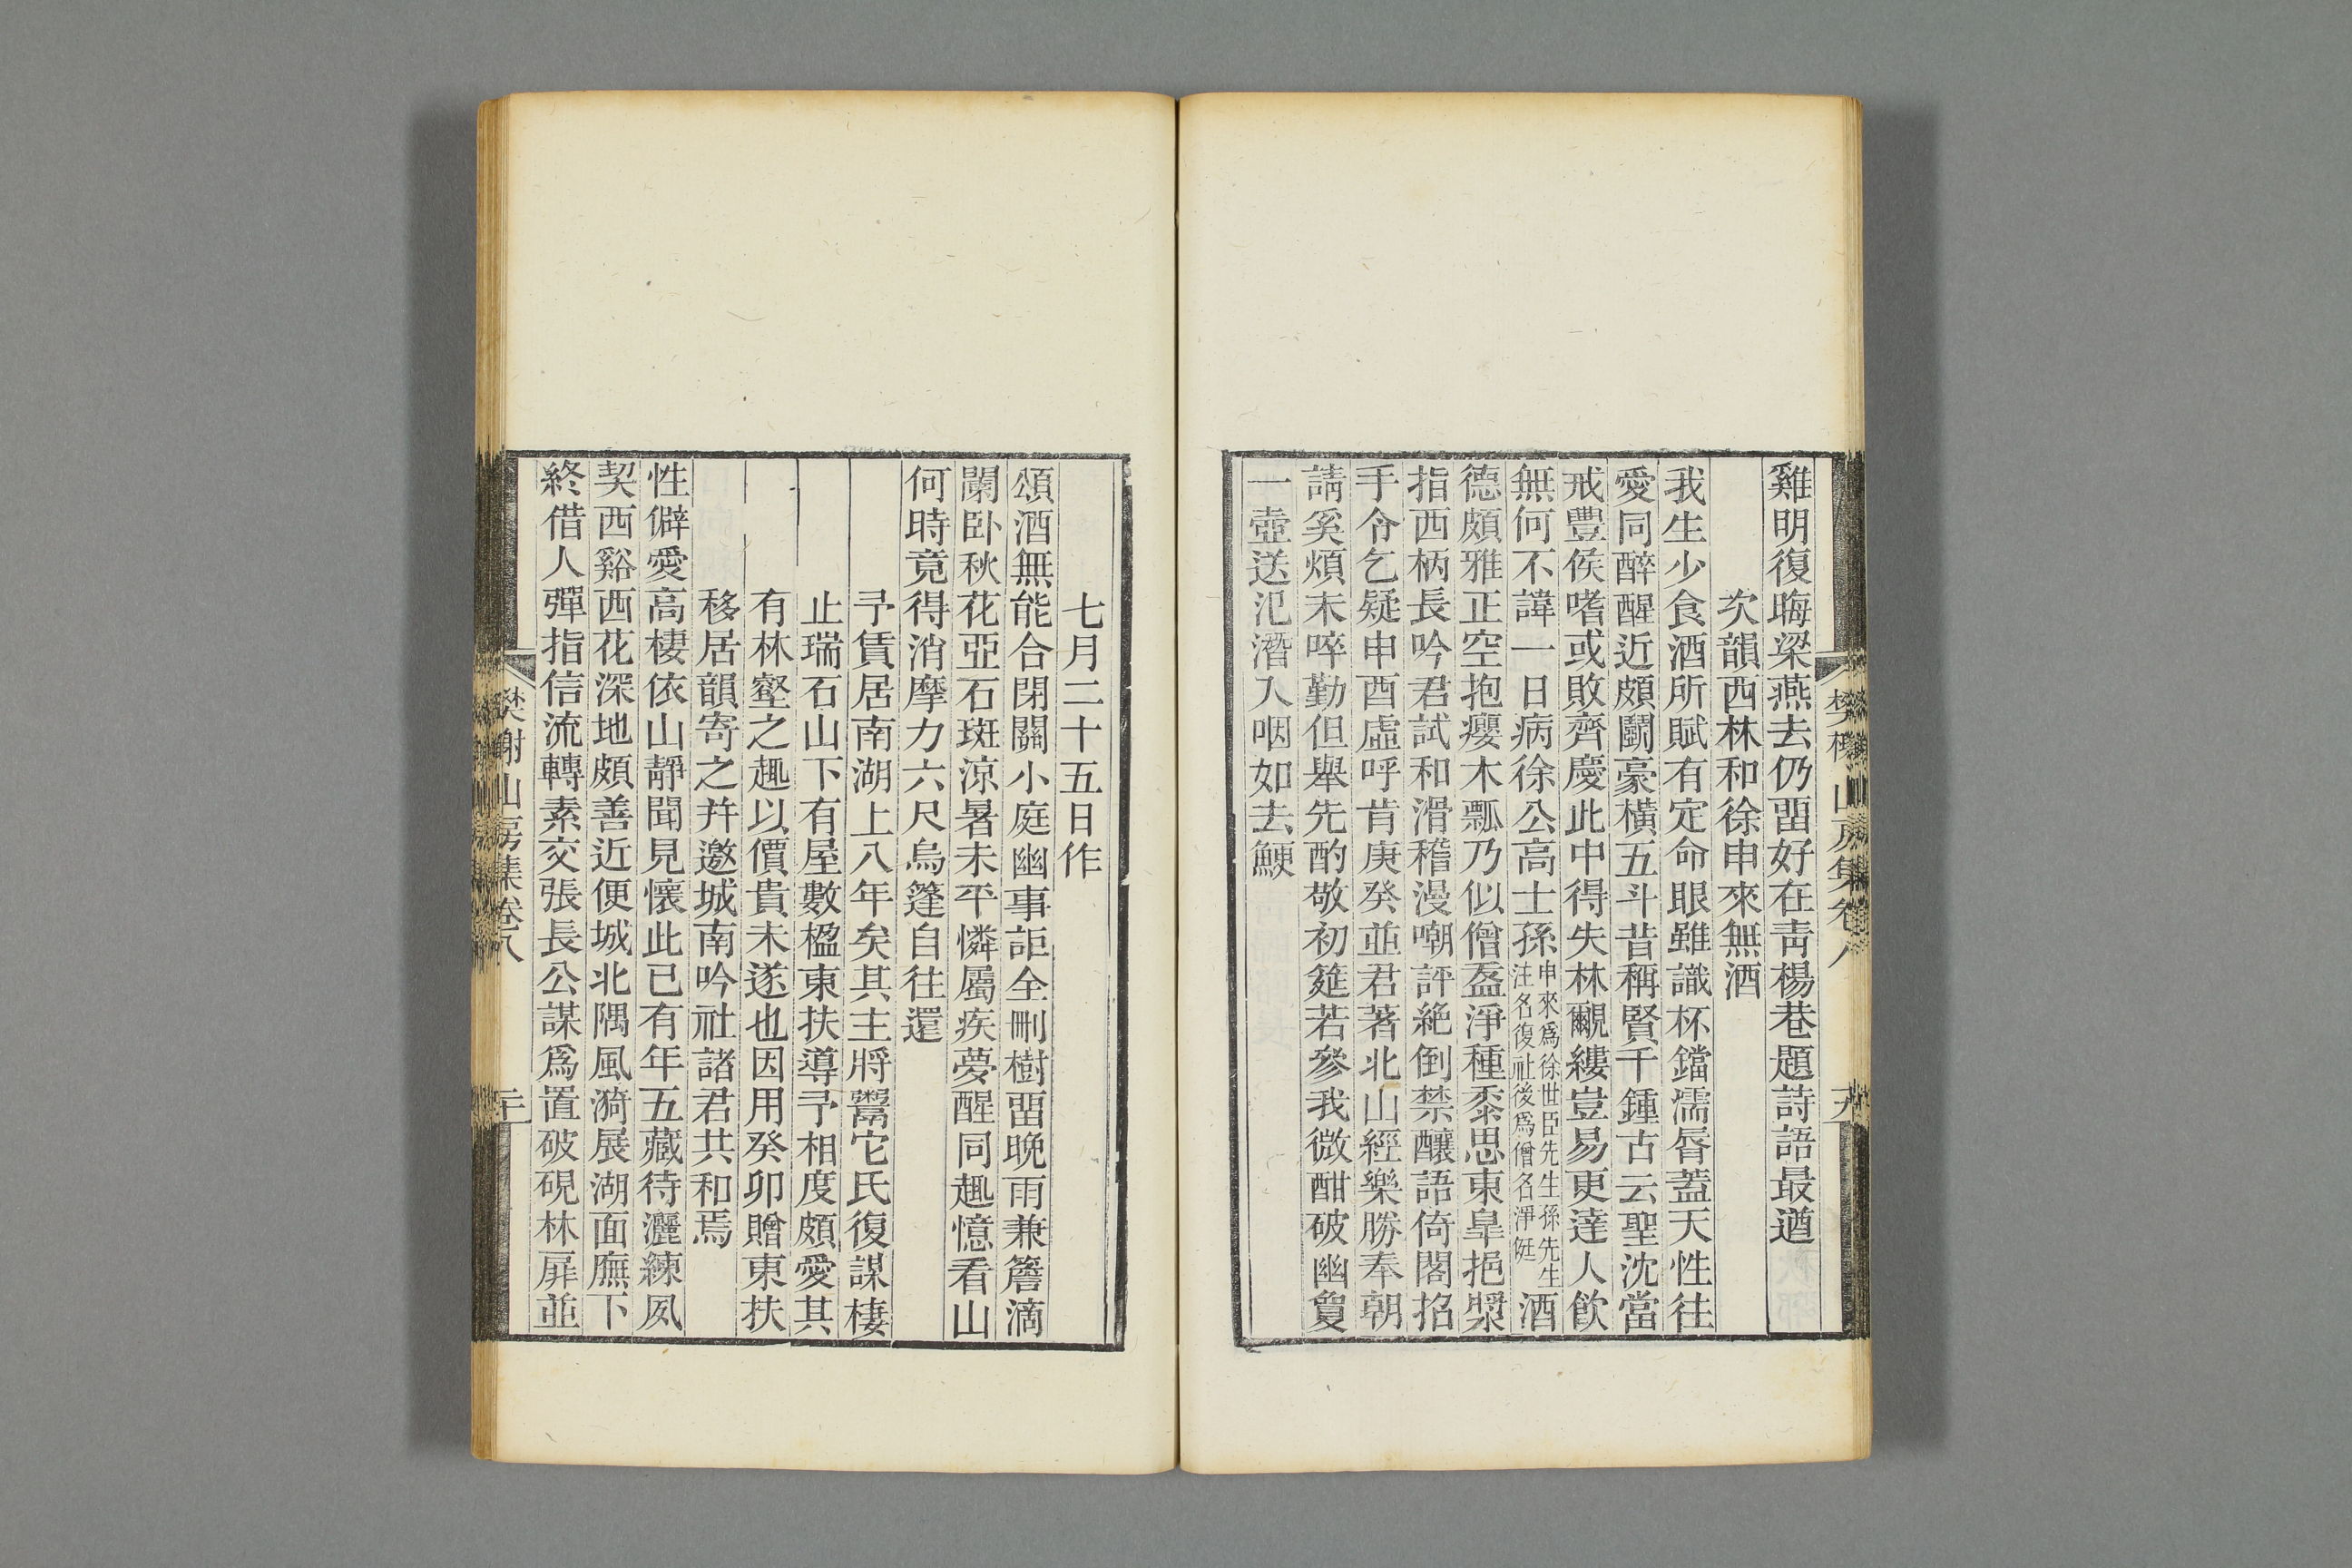 雞明復晦梁燕去仍畱好在靑楊巷題詩語最遒
次韻西林和徐申來無酒
我生少食酒所賦有定命眼雖識杯鐺濡脣蓋天性往
愛同醉醒近頗鬭豪橫五斗昔稱賢千鍾古云聖沈當
戒豐侯嗜或敗齊慶此中得失林覼縷豈易更達人飮
無何不諱一日病徐公高士孫申來爲徐世臣先生孫先生注名復社後爲僧名淨挺酒
德頗雅正空抱癭木瓢乃似僧盔淨種黍思東臯挹漿
指西柄長吟君試和滑稽漫嘲評絕倒禁釀語倚閣掐
手令乞疑申酉虛呼肯庚癸並君著北山經樂勝奉朝
請奚煩未啐勤但舉先酌敬初筵若參我微酣破幽敻
一壺送汜潛入咽如去鯁
樊榭山房集卷八
七月二十五日作
頌酒無能合閉關小庭幽事詎全刪樹畱晚雨兼簷滴
闌臥秋花亞石斑涼暑未平憐屬疾夢醒同趣憶看山
何時竟得消摩力六尺烏篷自往還
予賃居南湖上八年矣其主將鬻它氏復謀棲
止瑞石山下有屋數楹東扶導予相度頗愛其
有林壑之趣以價貴未遂也因用癸卯贈東扶
移居韻寄之幷邀城南吟社諸君共和焉
性僻愛高棲依山靜聞見懷此已有年五藏待灑練夙
契西谿西花深地頗善近便城北隅風漪展湖面廡下
終借人彈指信流轉素交張長公謀爲置破硯林扉並
樊榭山房集卷八